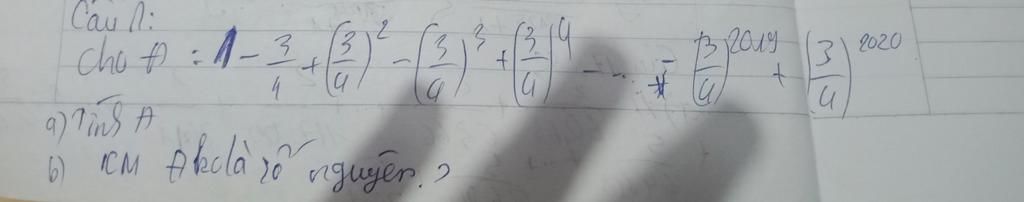 Câu 1:
Cho A = 1 - 3/4 + (3/4)^2 - (3/4)^3 + (3/4)^4 - ... - (3/4)^2019 + (3/4)^2020
a) Tính A
b) CM A kclà số nguyên.